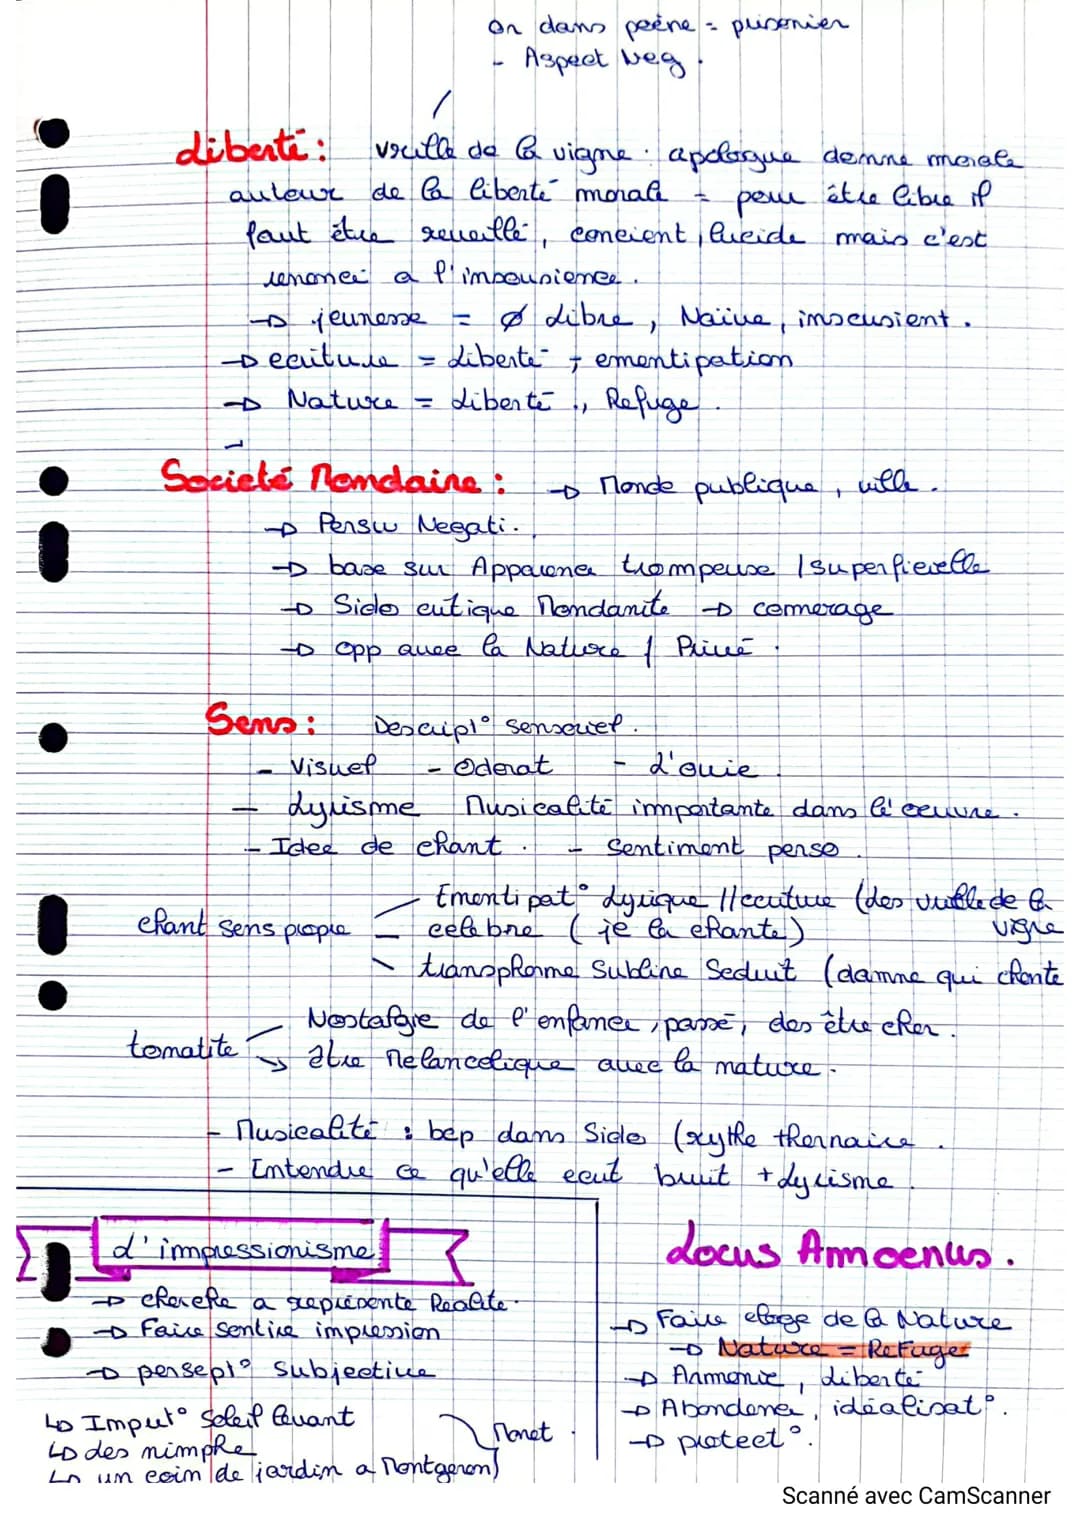 on dans peéne = prisonier
- Aspect Neg.
Liberté : vrille de la vigne : apologue donne morale
auteur de la liberté morale = pour être libre il
faut être reveillé, concient, lucide mais c'est
renoncé a l'insousience.
→ jeunesse = Ø Libre, Naïve, inscusient.
→ ecriture = Liberté + ementipation
→ Nature = Liberté, Refuge.
Societé Mondaine : → Monde publique, ville.
→ Persu Negati.
→ base sur Apparence trompeuse / superficielle
→ Sido critique Mondanite → comerage
→ opp avec la Nature / Privé.
Sens : Descript° sensoriel.
- Visuel - Oderat - L'ouie.
- Lyrisme Musicalité importante dans l'oeuvre.
- Idee de chant. - Sentiment perso.
Ementipat° Lyrique // ecriture (les vrille de la
chant sens propre - celebre (je la chante) vigne
transphorme Sublime Seduit (damne qui chante
Nostalgie de l'enfance, passé, des être cher.
tonalite → être Melancolique avec la nature.
- Musicalité : bcp dans Sido (rythe thernaire.
- Entendre ce qu'elle ecrit bruit + Lyrisme.
L'impressionisme
→ cherche a représente Realite.
→ Faire sentire impression
→ persept° Subjective
↳ Impret° Soleil Levant
↳ des nimphe Monet.
↳ un coin de jardin a Montgeron
Locus Amoenus.
→ Faire eloge de la Nature
→ Nature = Refuge
→ Armonie, Liberté
→ Abondance, idéalisat°.
→ protect°.
Scanné avec CamScanner